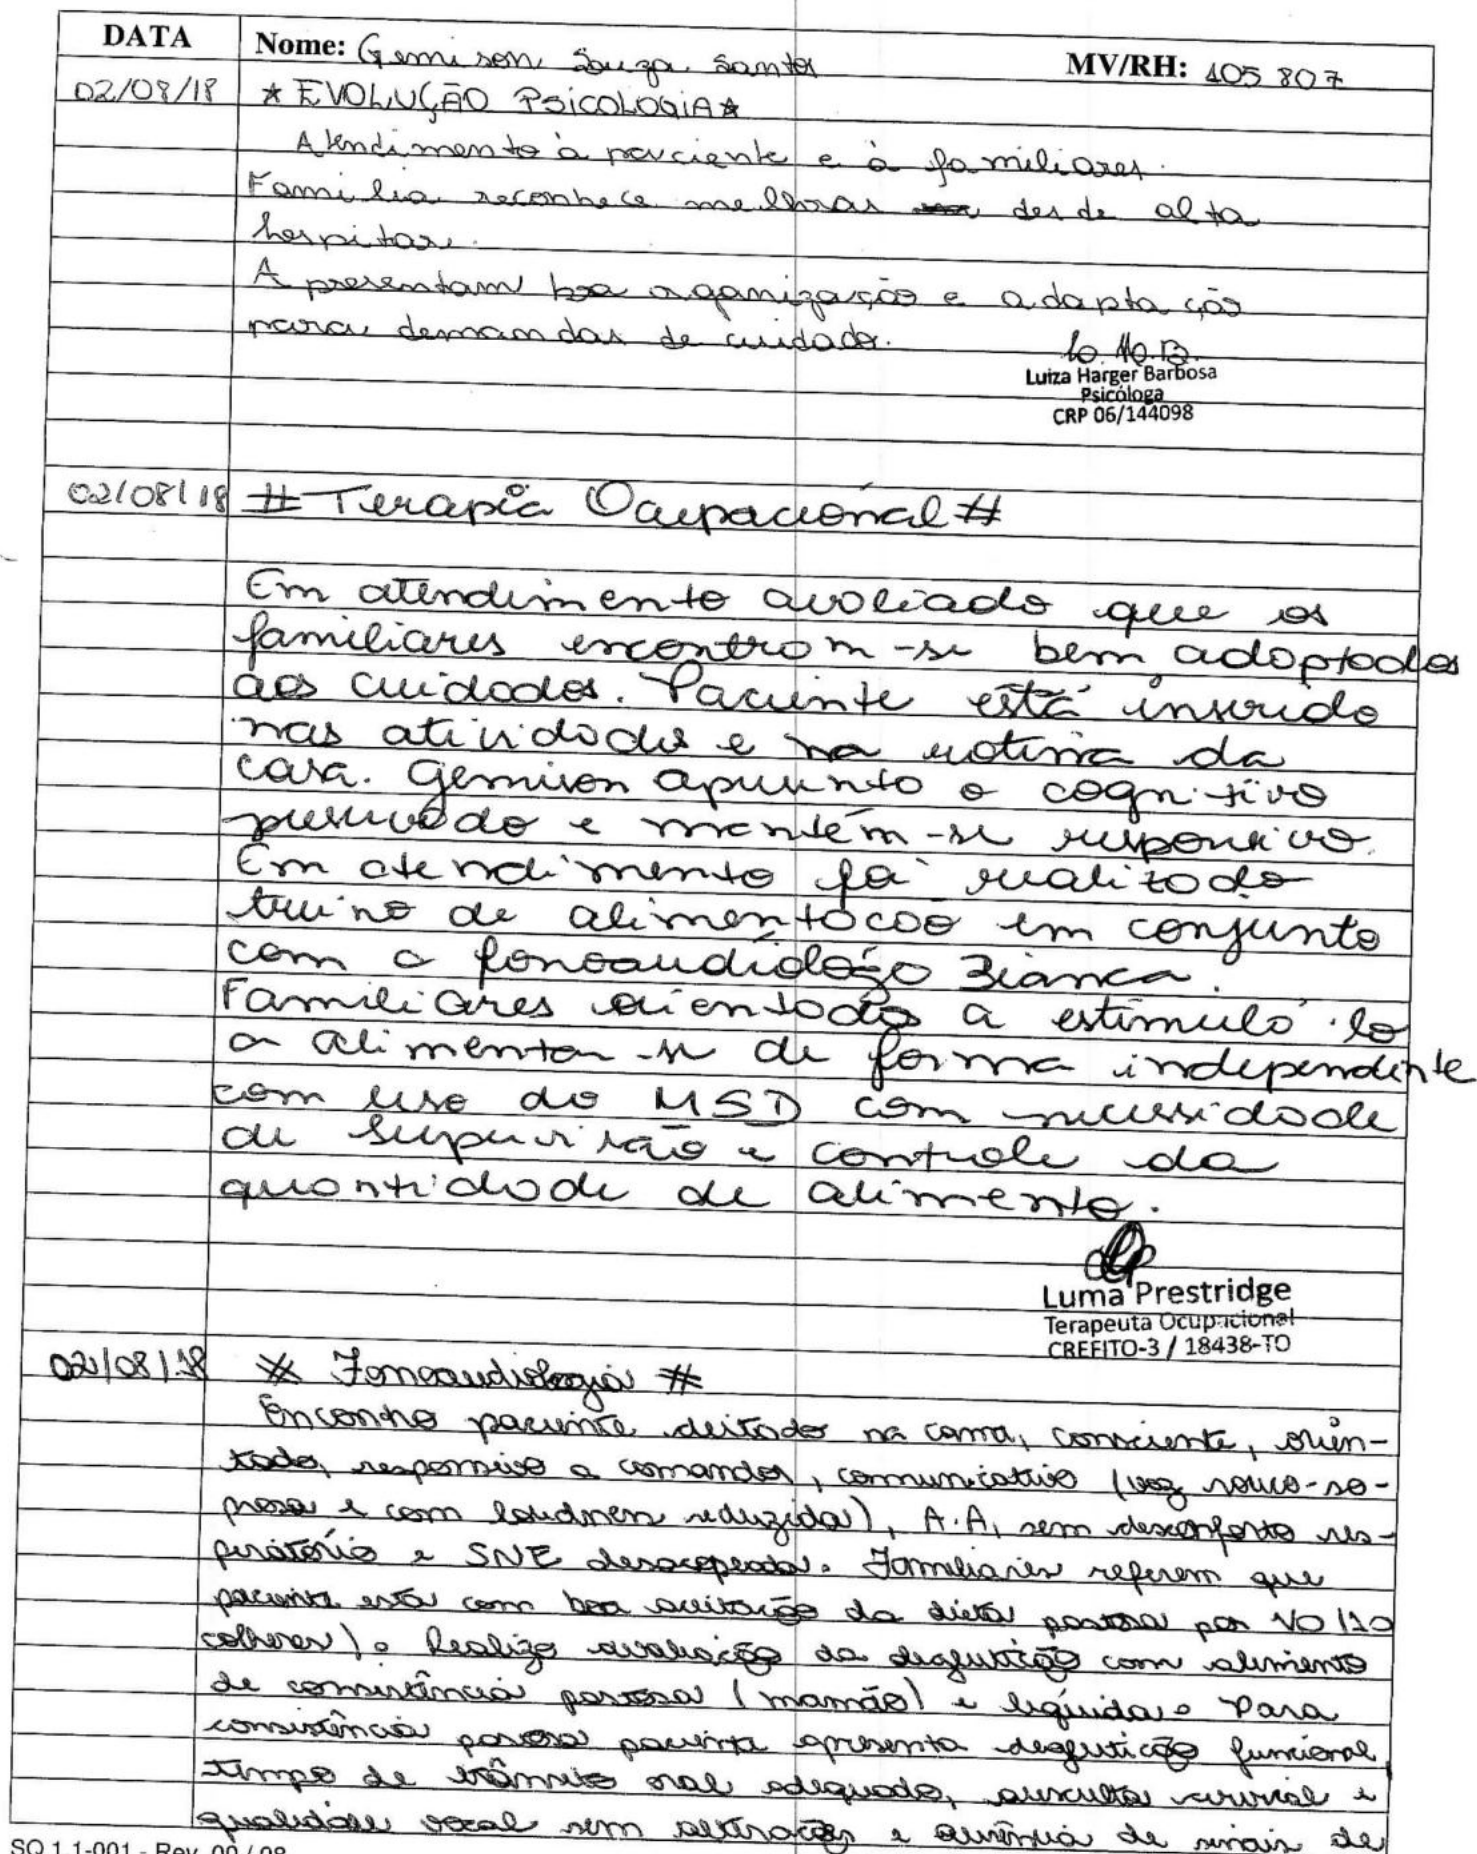 DATA Nome: Gemison Souza Santos MV/RH: 405 807
02/08/18 * EVOLUÇÃO PSICOLOGIA *
Atendimento à paciente e à familiares.
Familia reconhece melhoras desde alta
hospitar.
Apresentam boa organização e adaptação
para demandas de cuidados.
Luiza Harger Barbosa
Psicóloga
CRP 06/144098
02/08/18 # Terapia Ocupacional #
Em atendimento avaliado que os
familiares encontram-se bem adaptados
aos cuidados. Paciente está inserido
nas atividades e na rotina da
casa. Gemison apresenta o cognitivo
preservado e mantém-se responsivo.
Em atendimento foi realizado
treino de alimentacão em conjunto
com a fonoaudióloga Bianca.
Familiares orientados a estimulá-lo
a alimentar-se de forma independente
com uso do MSD com necessidade
de supervisão e controle da
quantidade de alimento.
Luma Prestridge
Terapeuta Ocupacional
CREFITO-3 / 18438-TO
02/08/18 # Fonoaudiologia #
Encontro paciente deitado na cama, consciente, orien-
tado, responsivo a comandos, comunicativo (voz rouco-so-
prosa e com loudness reduzida), A.A, sem desconforto res-
piratório e SNE desacopada. Familiares referem que
paciente está com boa aceitação da dieta pastosa por VO (10
colheres). Realizo avaliação da deglutição com alimento
de consistência pastosa (mamão) e líquida. Para
consistência pastosa paciente apresenta deglutição funcional,
tempo de trânsito oral adequado, ausculta cervical e
qualidade vocal sem alterações e ausência de sinais de
SQ 1.1-001 - Rev. 00 / 08